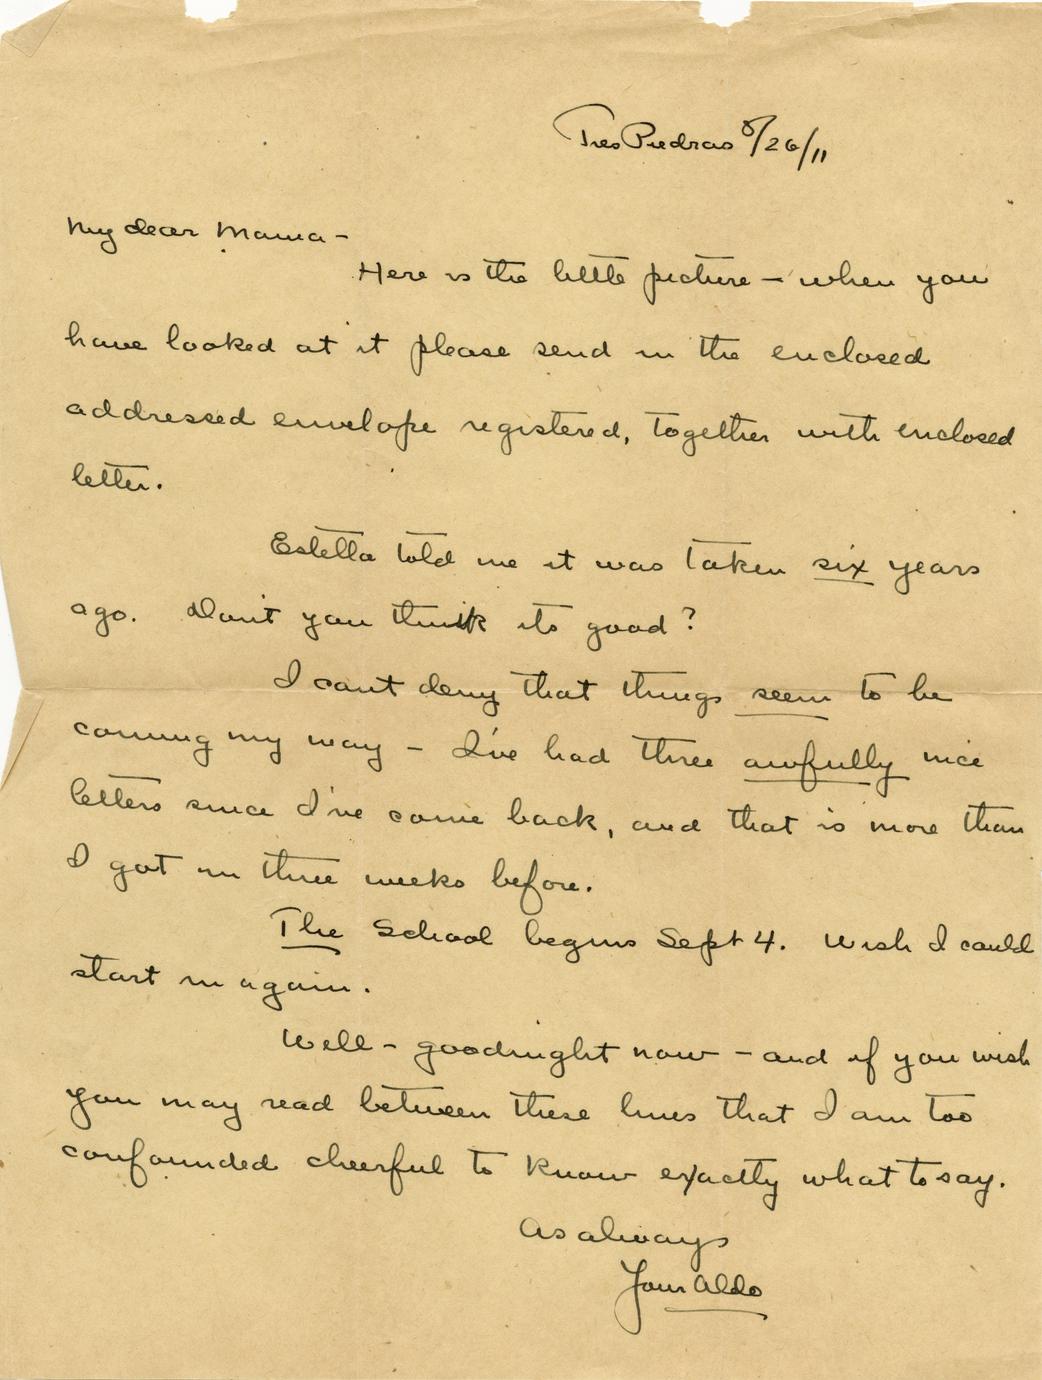 Tres Piedras 8/26/11
My dear Mama -
Here is the little picture - when you
have looked at it please send in the enclosed
addressed envelope registered, together with enclosed
letter.
Estella told me it was taken six years
ago. Don't you think its good?
I can't deny that things seem to be
coming my way - I've had three awfully nice
letters since I've come back, and that is more than
I got in three weeks before.
The School begins Sept 4. Wish I could
start in again.
Well - goodnight now - and if you wish
you may read between these lines that I am too
confounded cheerful to know exactly what to say.
As always
Your Aldo